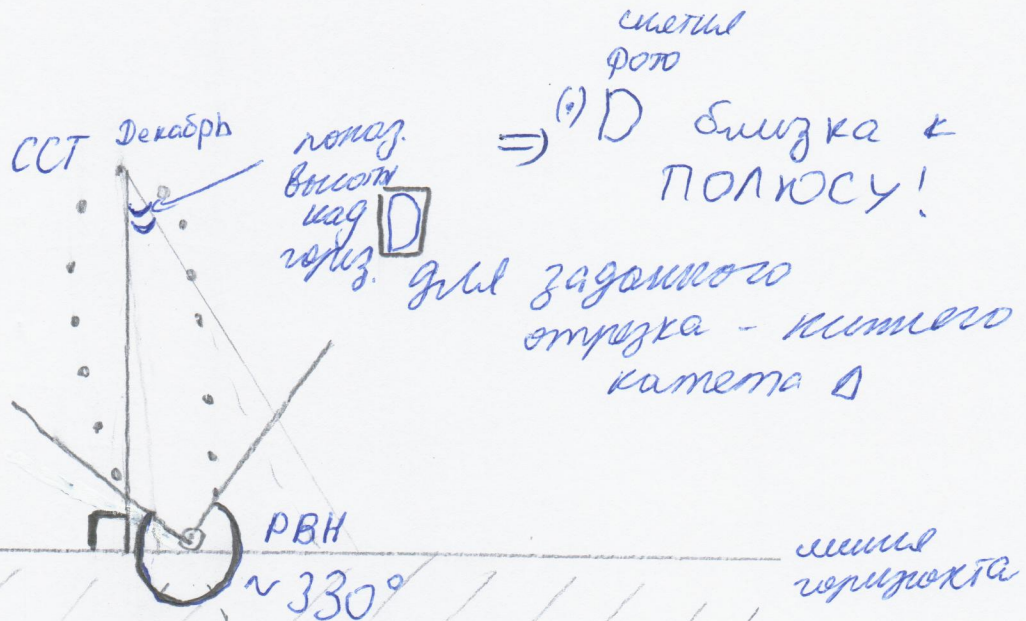 снятия
фото
ССТ Декабрь
показ.
высоты
над
гориз. D
⇒ (·) D близка к
ПОЛЮСУ!
для заданного
отрезка - нижнего
катета Δ
РВН
~330°
линия
горизонта